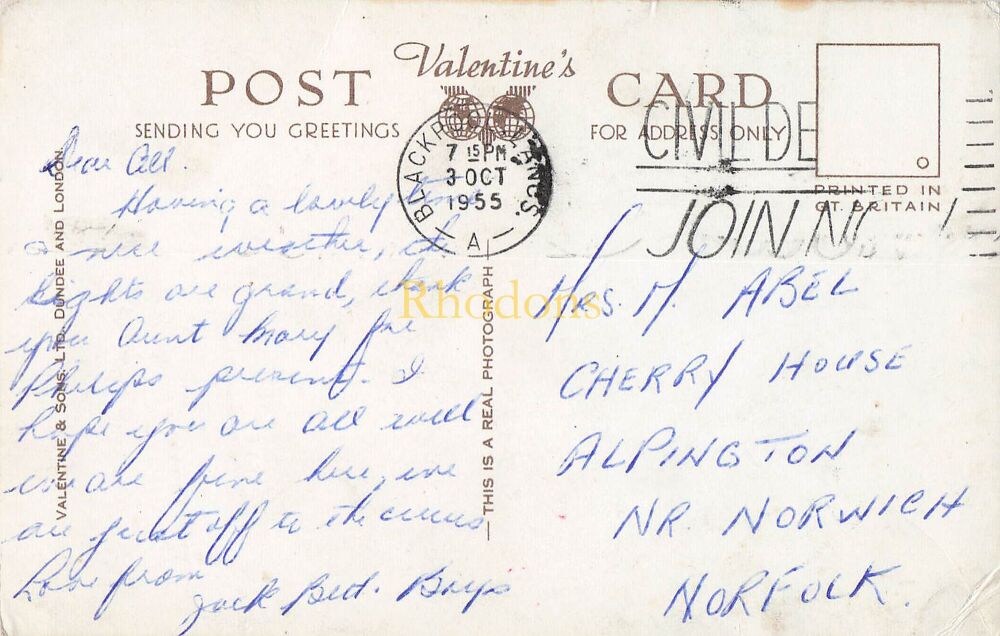 Valentine's
POST CARD
SENDING YOU GREETINGS FOR ADDRESS ONLY
BLACKPOOL LANCS.
7 15 PM
3 OCT
1955
A
CIVIL DE
JOIN N
PRINTED IN
GT. BRITAIN
VALENTINE & SONS. LTD. DUNDEE AND LONDON.
THIS IS A REAL PHOTOGRAPH
Rhodons
Dear All.
Having a lovely time
& nice weather, the
lights are grand, thank
you Aunt Mary for
Philips present. I
hope you are all well
we are fine here, we
are just off to the circus
Love from
Jack Bet. Boys
MRS. M. ABEL
CHERRY HOUSE
ALPINGTON
NR. NORWICH
NORFOLK.